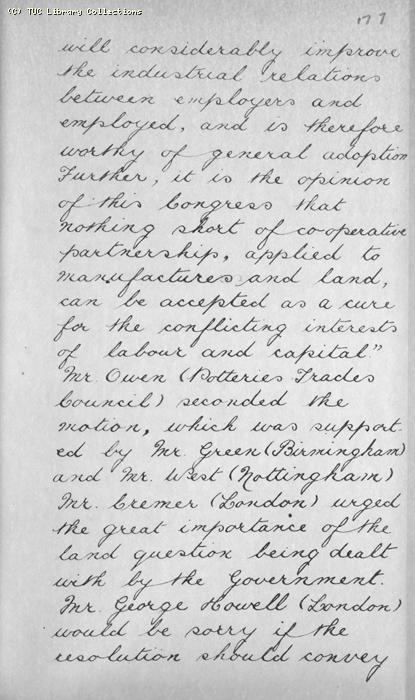 (C) TUC Library Collections
177
will considerably improve
the industrial relations
between employers and
employed, and is therefore
worthy of general adoption
Further, it is the opinion
of this Congress that
nothing short of co-operative
partnership, applied to
manufactures and land,
can be accepted as a cure
for the conflicting interests
of labour and capital."
Mr. Owen (Potteries Trades
Council) seconded the
motion, which was support-
ed by Mr. Green (Birmingham)
and Mr. West (Nottingham)
Mr. Cremer (London) urged
the great importance of the
land question being dealt
with by the Government.
Mr. George Howell (London)
would be sorry if the
resolution should convey